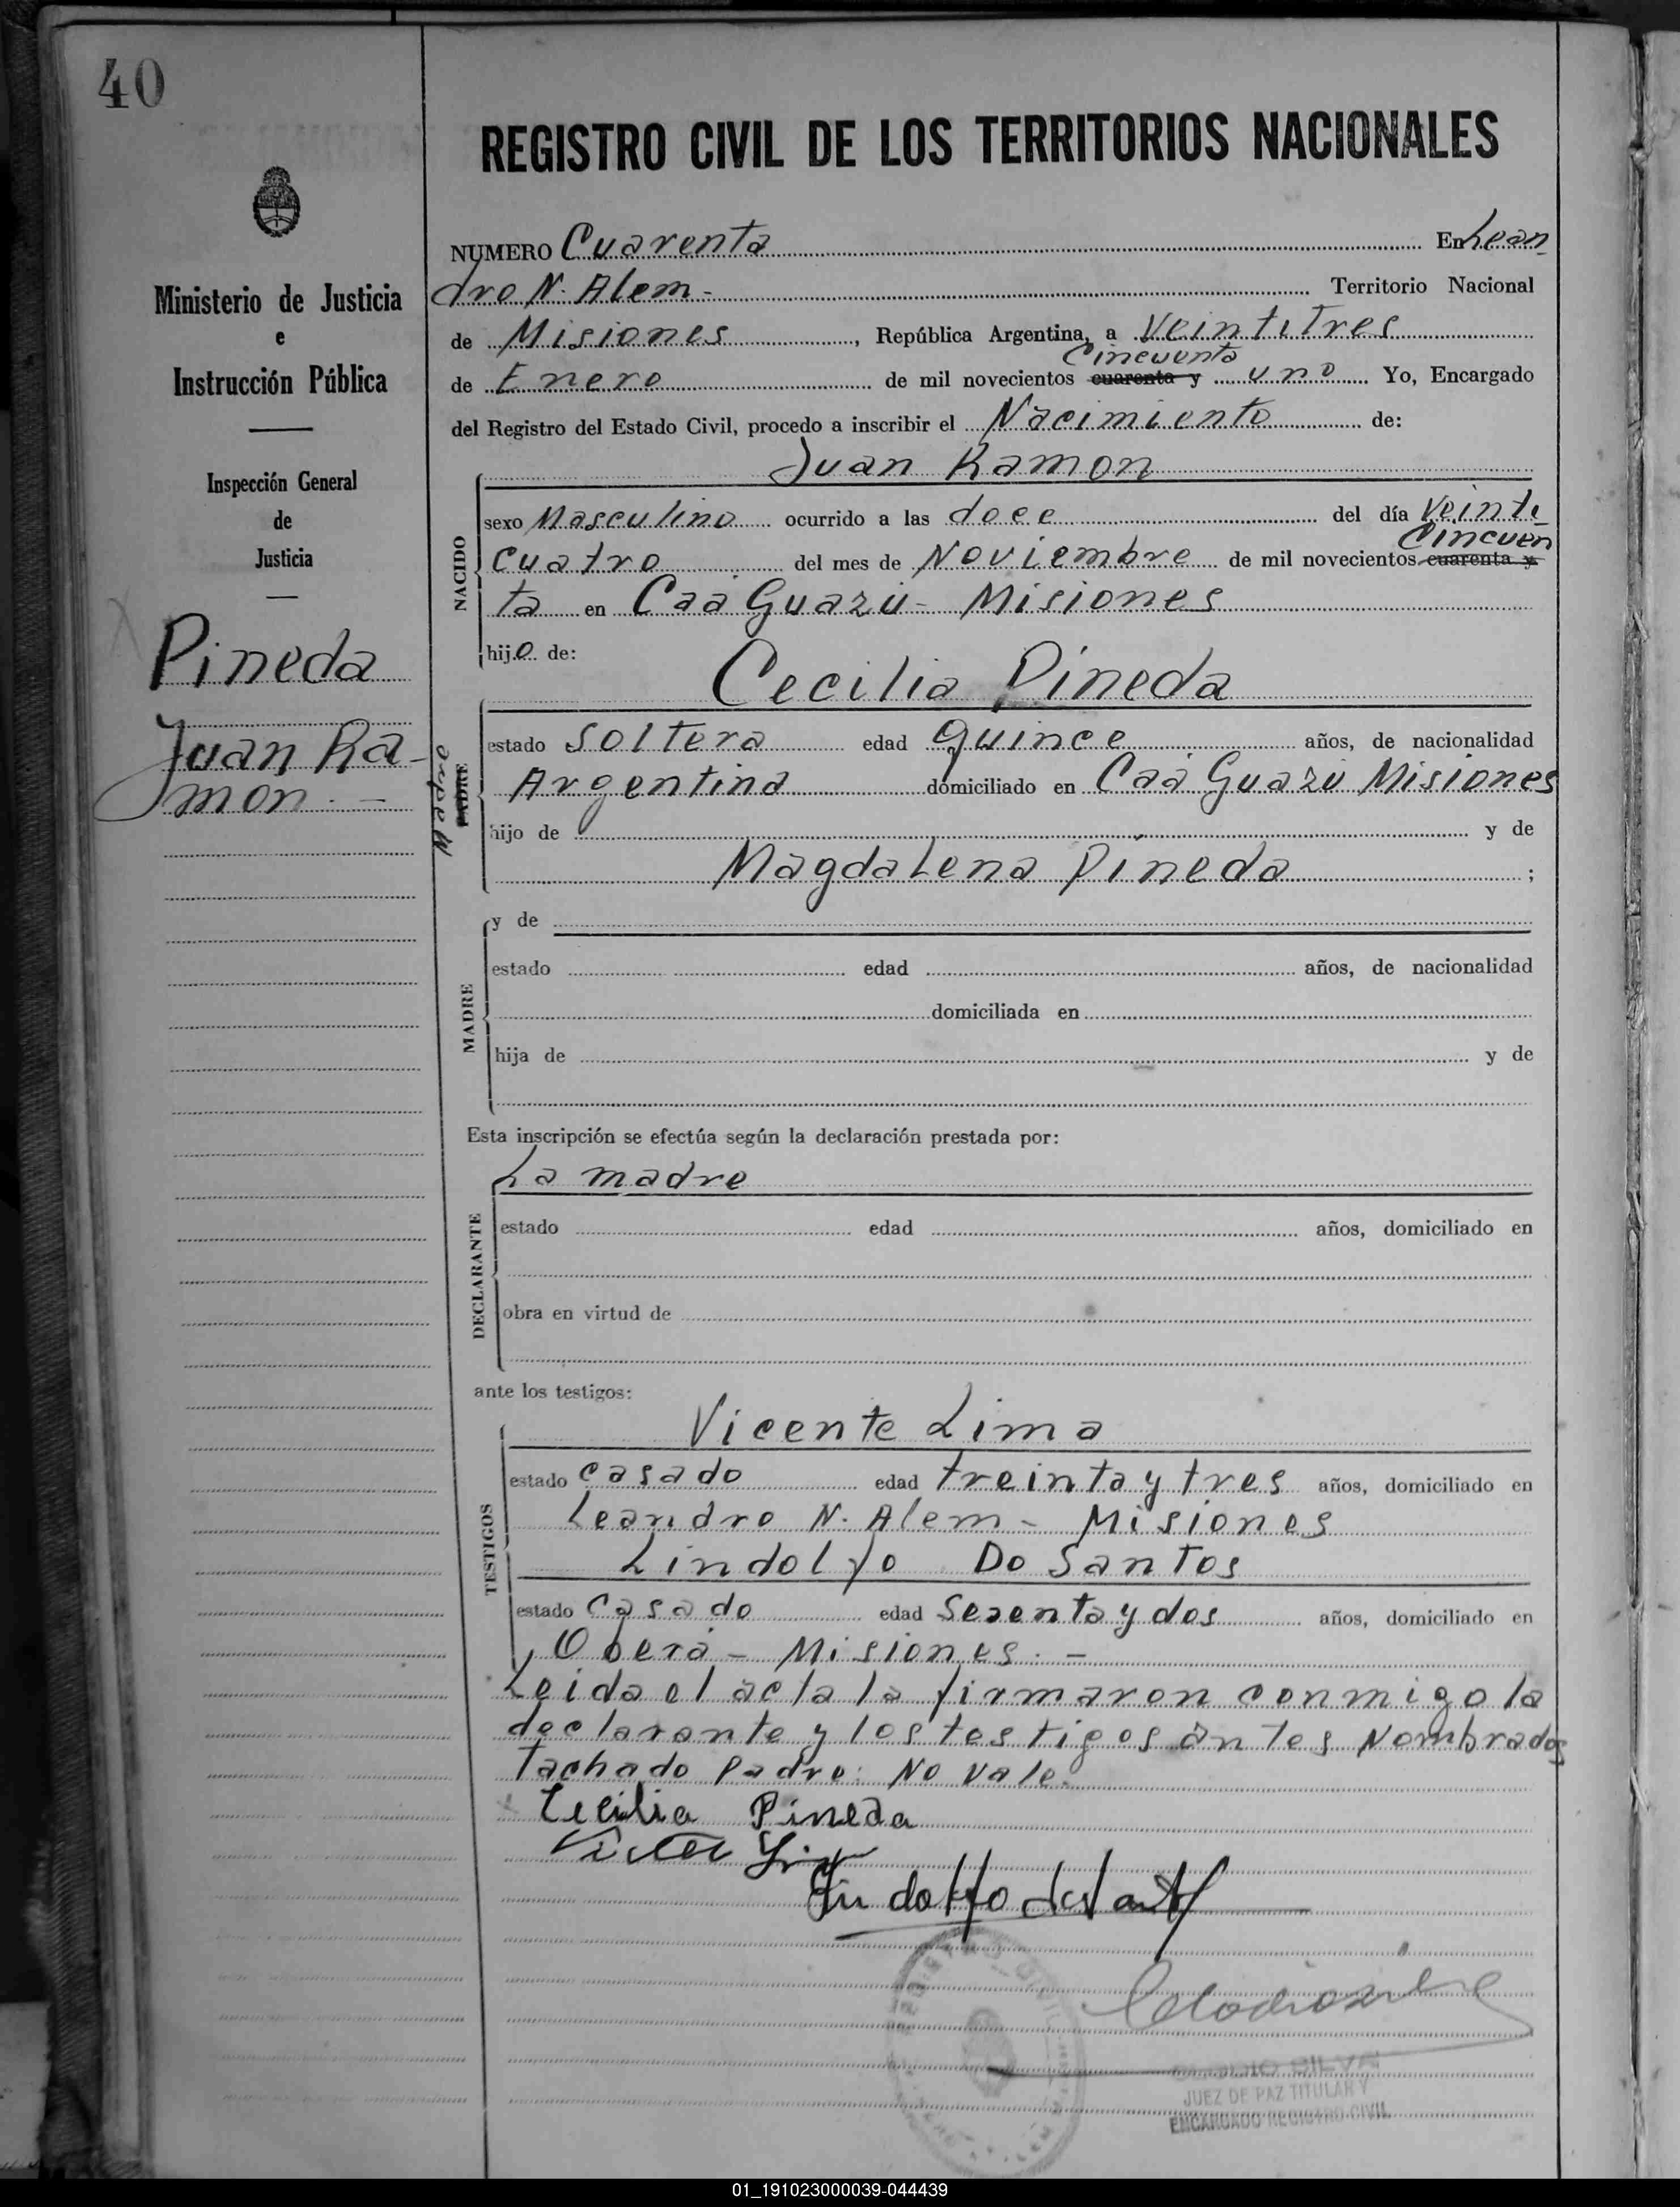 40
REGISTRO CIVIL DE LOS TERRITORIOS NACIONALES
Ministerio de Justicia
e
Instrucción Pública
Inspección General
de
Justicia
Pineda
Juan Ra-
mon. -
NUMERO Cuarenta En Lean-
dro N. Alem - Territorio Nacional
de Misiones, República Argentina, a Veintitres
Cincuenta
de Enero de mil novecientos cuarenta y uno Yo, Encargado
del Registro del Estado Civil, procedo a inscribir el Nacimiento de:
Juan Ramon
NACIDO
sexo Masculino ocurrido a las doce del día Veinti-
Cincuen
cuatro del mes de Noviembre de mil novecientos cuarenta y
ta en Caá Guazú - Misiones
hijo de:
Cecilia Pineda
Madre
PADRE
estado Soltera edad quince años, de nacionalidad
Argentina domiciliado en Caá Guazú Misiones
hijo de y de
Magdalena Pineda ;
MADRE
y de
estado edad años, de nacionalidad
domiciliada en
hija de y de
Esta inscripción se efectúa según la declaración prestada por:
La madre
DECLARANTE
estado edad años, domiciliado en
obra en virtud de
ante los testigos:
TESTIGOS
Vicente Lima
estado casado edad treinta y tres años, domiciliado en
Leandro N. Alem - Misiones
Lindolfo Do Santos
estado Casado edad Sesenta y dos años, domiciliado en
Oberá - Misiones. -
Leida el acta la firmaron conmigo la
declarante y los testigos antes Nombrados
Tachado Padre: No Vale.
Cecilia Pineda
JUEZ DE PAZ TITULAR Y
ENCARGADO REGISTRO CIVIL
01_191023000039-044439